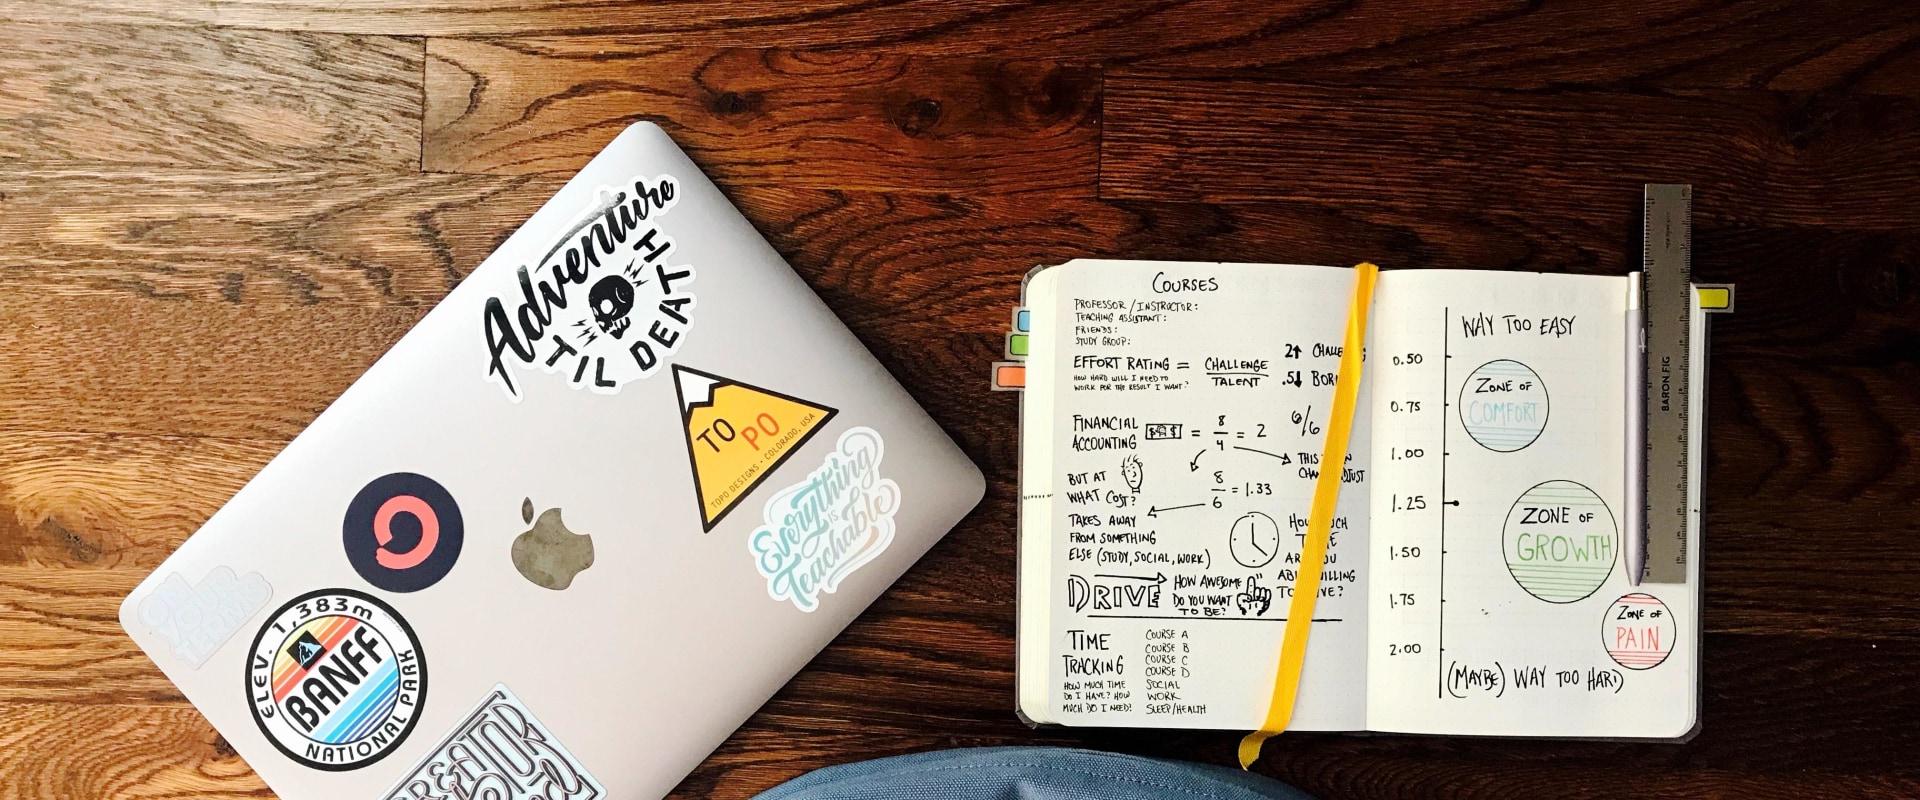 Adventure
TIL DEATH
TO PO
TOPO DESIGNS • COLORADO, USA
Everything
is
Teachable
ELEV. 1,383m
BANFF
NATIONAL PARK
CREATOR
COURSES
PROFESSOR / INSTRUCTOR:
TEACHING ASSISTANT:
FRIENDS:
STUDY GROUP:
EFFORT RATING = CHALLENGE
TALENT
HOW HARD WILL I NEED TO
WORK FOR THE RESULT I WANT?
2↑
.5↓
FINANCIAL
ACCOUNTING $$$ = 8/4 = 2
6/6
THIS
BUT AT
WHAT COST?
8/6 = 1.33
TAKES AWAY
FROM SOMETHING
ELSE (STUDY, SOCIAL, WORK)
DRIVE
HOW AWESOME
DO YOU WANT
TO BE?
TIME
TRACKING
HOW MUCH TIME
DO I HAVE? HOW
MUCH DO I NEED?
COURSE A
COURSE B
COURSE C
COURSE D
SOCIAL
WORK
SLEEP/HEALTH
WAY TOO EASY
0.50
ZONE OF
COMFORT
0.75
1.00
1.25
ZONE OF
GROWTH
1.50
1.75
ZONE OF
PAIN
2.00
(MAYBE) WAY TOO HARD
BARON FIG